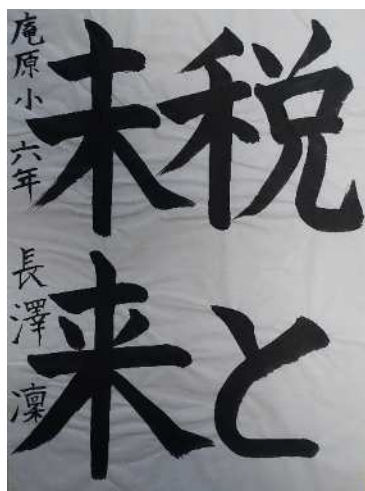 税と
未来
庵原小 六年 長澤 凜